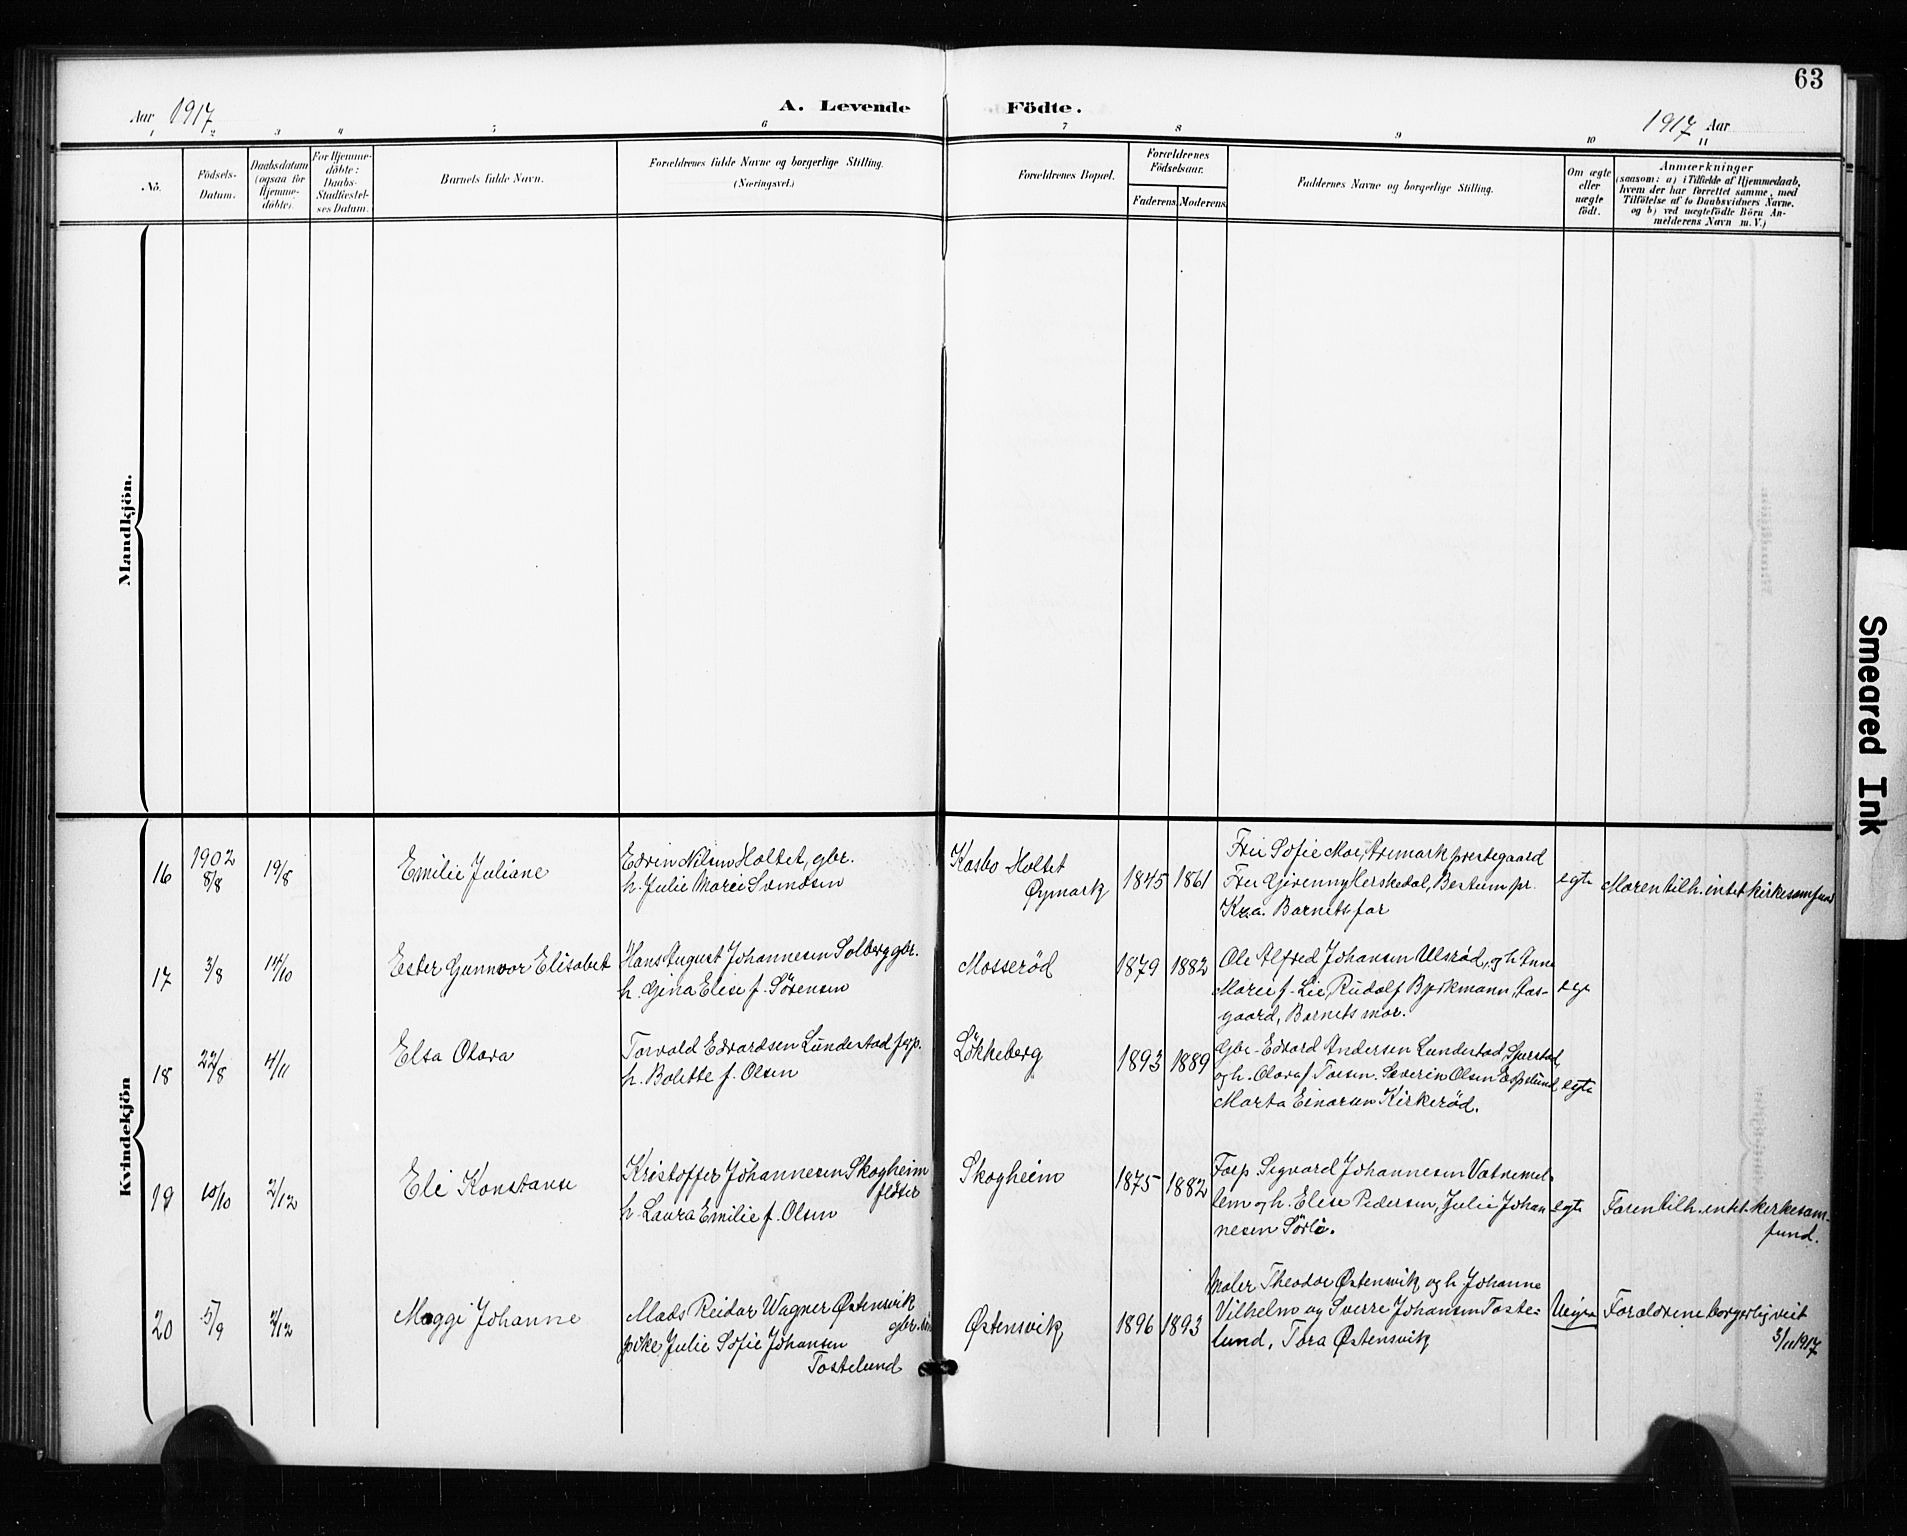 63
Aar 1917
A. Levende Födte.
1917 Aar
1 2 3 4 5 6 7 8 9 10 11
No.
Födsels-
Datum.
Daabsdatum
(ogsaa for
Hjemme-
döbte).
For Hjemme-
döbte:
Daabs-
Stadfæstel-
ses Datum.
Barnets fulde Navn.
Forældrenes fulde Navne og borgerlige Stilling.
(Næringsvei.)
Forældrenes Bopæl.
Forældrenes
Födselsaar.
Faderens.
Moderens.
Faddernes Navne og borgerlige Stilling.
Om ægte
eller
uægte
födt.
Anmærkninger
(saasom: a) i Tilfælde af Hjemmedaab,
hvem der har forrettet samme, med
Tilföielse af to Daabsvidners Navne.
og b) ved uægtefödte Börn An-
melderens Navn m. V.)
Mandkjön.
Kvindekjön
16
1902
8/8
19/8
Emilie Juliane
Edvin Nilsen Holtet, gbr.
h. Julie Marie Svendsen
Kasbo Holtet
Øymark
1845
1861
Fru Sofie Moe, Aremark prestegaard
Fru Herskedal, Bestum pr.
Kr.a. Barnets far
egte
Moren tilh. intet kirkesamfund
17
3/8
14/10
Ester Gunnvor Elisabet
Hans August Johannesen Solberg gbr.
h. Gina Elise f. Sörensen
Mosseröd
1879
1882
Ole Alfred Johansen Ulsröd, og h. Anne
Marie f. Lie, Rudolf Bjerkmann,
gaard, Barnets mor.
18
22/8
4/11
Elsa Olava
Torvald Edvardsen Lundestad
h. Bolette f. Olsen
Lökkeberg
1893
1889
Gbr. Edvard Andersen Lundestad,
og h. Olava f. Severin Olsen Espelund,
Marta Einarsen Kirkeröd.
egte
19
10/10
2/12
Eli Konstanse
Kristoffer Johannesen Skogheim
flöter
h. Laura Emilie f. Olsen
Skogheim
1875
1882
Forp. Sigvard Johannesen Vatnemel-
lem og h. Elise Pedersen, Julie Johan-
nesen Sörli.
egte
Faren tilh. intet kirkesam-
fund.
20
5/9
2/12
Maggi Johanne
Mads Reidar Wagner Østensvik
pike Julie Sofie Johansen
Tostelund
Østensvik
1896
1893
Maler Theodor Østensvik og h. Johanne
Vilhelm og Sverre Johansen Toste-
lund, Tora Østensvik
Forældrene borgerlig viet
3/11 1917
Smeared Ink